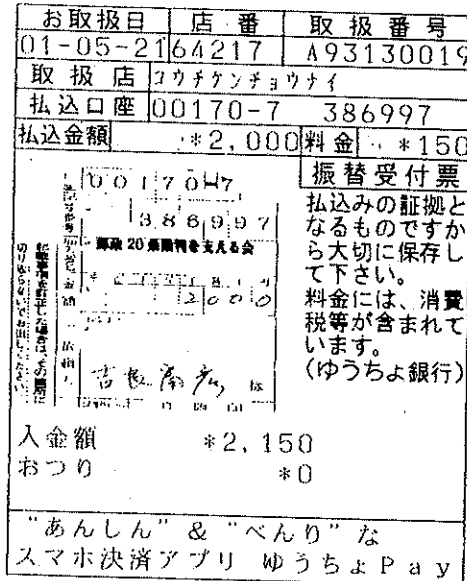 お取扱日 店番 取扱番号
01-05-21 64217 A93130019
取扱店 コウチケンチョウナイ
払込口座 00170-7 386997
払込金額 *2,000 料金 *150
振替受付票
払込みの証拠と
なるものですか
ら大切に保存し
て下さい。
料金には、消費
税等が含まれて
います。
(ゆうちょ銀行)
00170-7
386997
郵政20条裁判を支える会
2000
入金額 *2,150
おつり *0
"あんしん"&"べんり"な
スマホ決済アプリ ゆうちょPay